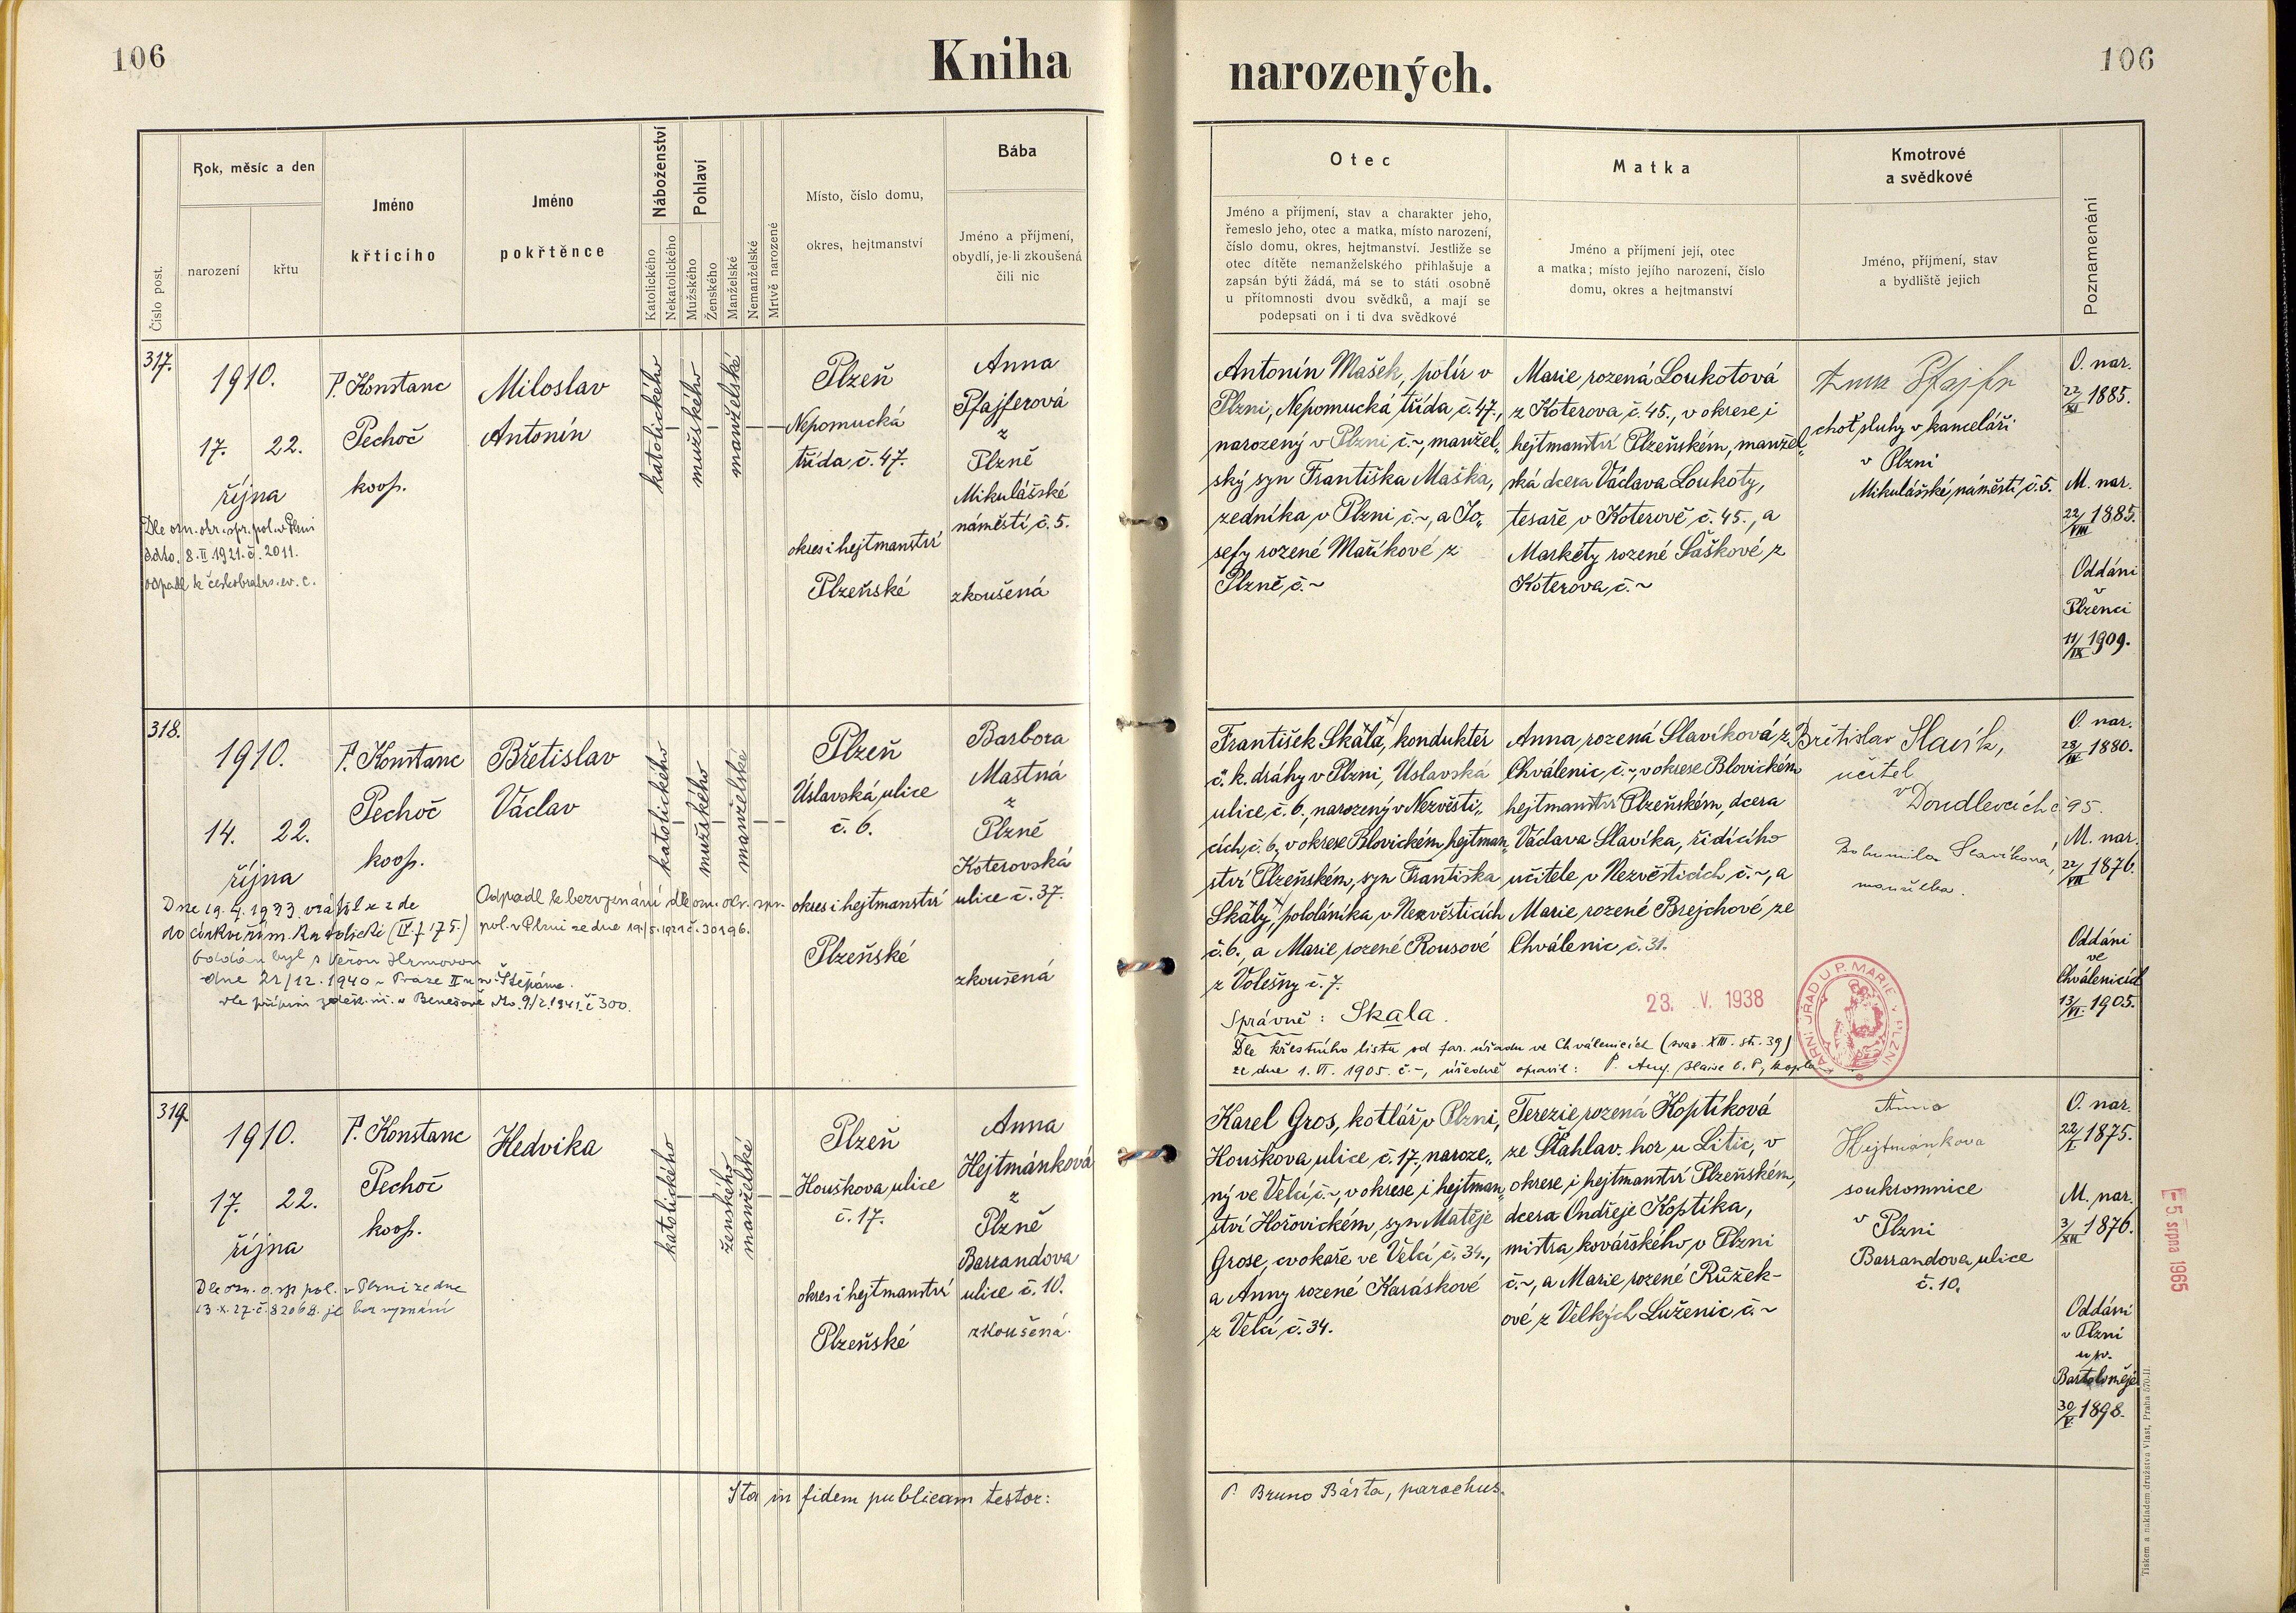 106
Kniha
narozených.
106
Číslo post.
Rok, měsíc a den
narození
křtu
Jméno
křtícího
Jméno
pokřtěnce
Náboženství
Katolického
Nekatolického
Pohlaví
Mužského
Ženského
Manželské
Nemanželské
Mrtvě narozené
Místo, číslo domu,
okres, hejtmanství
Bába
Jméno a příjmení,
obydlí, je-li zkoušená
čili nic
Otec
Jméno a příjmení, stav a charakter jeho,
řemeslo jeho, otec a matka, místo narození,
číslo domu, okres, hejtmanství. Jestliže se
otec dítěte nemanželského přihlašuje a
zapsán býti žádá, má se to státi osobně
u přítomnosti dvou svědků, a mají se
podepsati on i ti dva svědkové
Matka
Jméno a příjmení její, otec
a matka; místo jejího narození, číslo
domu, okres a hejtmanství
Kmotrové
a svědkové
Jméno, příjmení, stav
a bydliště jejich
Poznamenání
317.
1910.
17. 22.
října
Dle ozn. okr. spr. pol. v Plzni
ddto. 8.II 1921. č. 2011.
odpadl k českobratrs. ev. c.
P. Konstanc
Pechoč
koop.
Miloslav
Antonín
katolického
mužského
manželské
Plzeň
Nepomucká
třída č. 47.
okres i hejtmanství
Plzeňské
Anna
Pfajferová
z
Plzně
Mikulášské
náměstí č. 5.
zkoušená
Antonín Mašek, polír v
Plzni, Nepomucká třída č. 47.,
narozený v Plzni č. ~, manžel„
ský syn Františka Maška,
zedníka v Plzni č. ~, a Jo„
sefy rozené Maříkové z
Plzně č. ~
Marie rozená Loukotová
z Koterova č. 45., v okrese i
hejtmanství Plzeňském, manžel„
ská dcera Václava Loukoty,
tesaře v Koterově č. 45., a
Markéty rozené Šaškové z
Koterova č. ~
Anna Pfajfr
choť sluhy v kanceláři
v Plzni
Mikulášské náměstí č. 5.
O. nar.
22/XI 1885.
M. nar.
22/VIII 1885.
Oddáni
v
Plzenci
11/IX 1909.
318.
1910.
14. 22.
října
Dne 19. 4. 1933 vrátil se zde
do církve řím. katolické (IV. f 175.)
Oddán byl s Věrou Hrmovou
dne 21/12. 1940 v Praze II u sv. Štěpána.
dle přípisu v Benešově dto. 9/2. 1941. č 300.
P. Konstanc
Pechoč
koop.
Břetislav
Václav
Odpadl k bezvyznání dle ozn. okr. spr.
pol. v Plzni ze dne 19./5. 1921 č. 30196.
katolického
mužského
manželské
Plzeň
Úslavská ulice
č. 6.
okres i hejtmanství
Plzeňské
Barbora
Mastná
z
Plzně
Koterovská
ulice č. 37.
zkoušená
František Skála, konduktér
č. k. dráhy v Plzni, Úslavská
ulice č. 6., narozený v Nezvěsti„
cích, č. 6., v okrese Blovickém, hejtman„
ství Plzeňském, syn Františka
Skály, pololáníka, v Nezvěsticích
č. 6., a Marie rozené Rousové
z Volešny č. 7.
Správně: Skala.
Dle křestního listu od far. úřadu ve Chválenicích (svaz. XIII. str. 39)
ze dne 1. VI. 1905. č. -, úředně opravil: P. Aug. Blaise O. P., kaplan
Anna rozená Slavíková z
Chválenic, č. ~, v okrese Blovickém
hejtmanství Plzeňském, dcera
Václava Slavíka, řídícího
učitele v Nezvěsticích č. ~, a
Marie rozené Brejchové ze
Chválenic č. 31.
23. V. 1938
Břetislav Slavík,
učitel
v Doudlevcích č 95.
Bohumila Slavíková,
manželka.
O. nar.
1880.
M. nar.
22/VII 1876.
Oddáni
ve
Chválenicích
13/VI. 1905.
319.
1910.
17. 22.
října
Dle ozn. o. sp. pol. v Plzni ze dne
13. X. 27. č. 82068. je bez vyznání
P. Konstanc
Pechoč
koop.
Hedvika
katolického
ženského
manželské
Plzeň
Houškova ulice
č. 17.
okres i hejtmanství
Plzeňské
Anna
Hejtmánková
z
Plzně
Barrandova
ulice č. 10.
zkoušená.
Karel Gros, kotlář v Plzni,
Houškova ulice č. 17., naroze„
ný ve Velcí č. ~, v okrese i hejtman„
ství Hořovickém, syn Matěje
Grose, cvokaře ve Velcí č. 34.,
a Anny rozené Karáskové
z Velcí č. 34.
Terezie rozená Koptíková
ze Šťáhlav. hor u Litic, v
okrese i hejtmanství Plzeňském,
dcera Ondřeje Koptíka,
mistra kovářského v Plzni
č. ~, a Marie rozené Růžek-
ové z Velkých Luženic č. ~
Anna
Hejtmánkova
soukromnice
v Plzni
Barrandova ulice
č. 10.
O. nar.
22/I. 1875.
M. nar.
3/XII 1876.
Oddáni
v Plzni
u sv.
Bartoloměje
30/V. 1898.
- 5. srpna 1965
Ita in fidem publicam testor:
P. Bruno Bárta, parochus.
Tiskem a nákladem družstva Vlast, Praha 570-II.